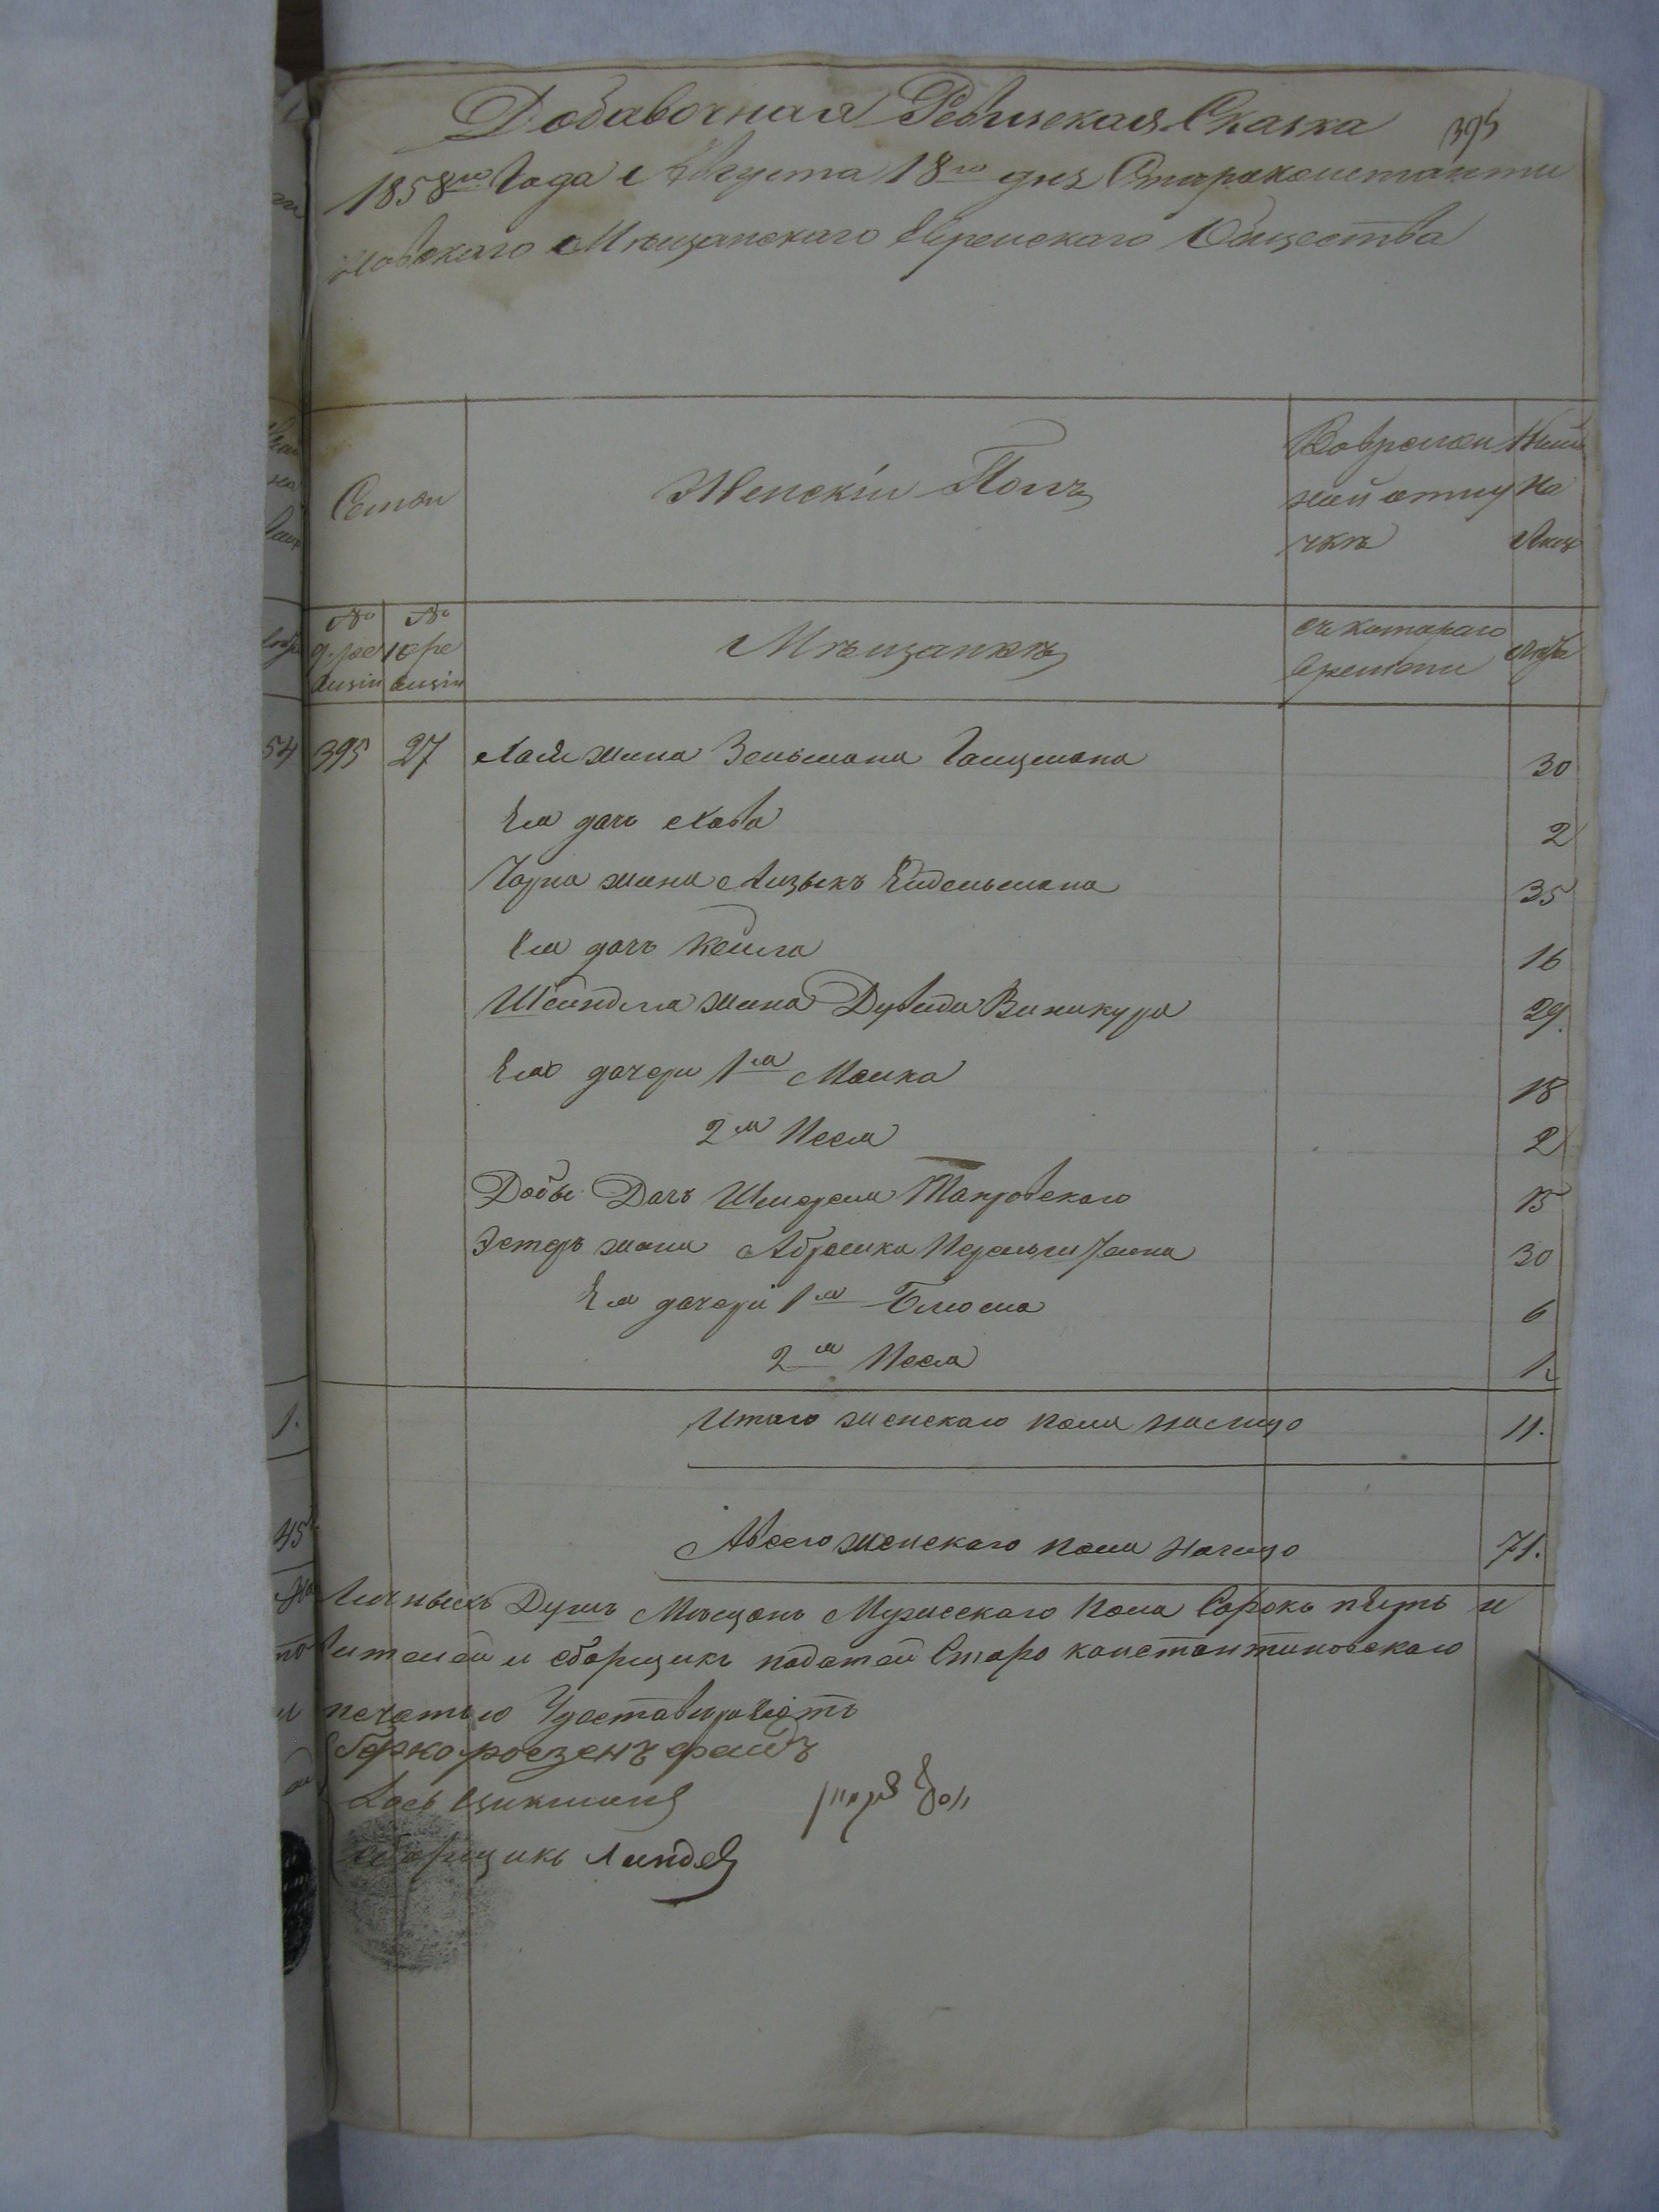 Добавочная Ревизская Сказка 395
1858го Года Августа 18го дня Староконстанти
новскаго Мѣщанскаго Еврейскаго Общества
Семьи
Женскій Полъ
Во времен
ной отлу
чкѣ
Ныне
На
Лицо
№ 9. ре
визіи
№ 10 ре
визіи
Мѣщанкѣ
съ котораго
времени
Лѣта
54 395 27 Хая жена Зельмана Гольцмана 30
Ея дочь Хава 2
Чарна жена Айзыкъ Ейдельмана 35
Ея дочь Кейла 16
Шейндля жена Дувида Виникура 29.
Ея дочери 1я Малка 18
2я Песя 2
Добы Дочь Шмереля 15
Эстеръ жена Абрамка 30
Ея дочери 1я Блюма 6
2я Песя 1
1. Итого женскаго пола налицо 11.
45 Авсего женскаго пола налицо 71.
Личныхъ Душъ Мѣщанъ Мужескаго пола Сорокъ пять и
вителей и сборщикъ податей Старо константиновскаго
печатью Удостовѣряетъ
Берко розенъ фельдъ
Іось Цикман
сборщикъ Линдер